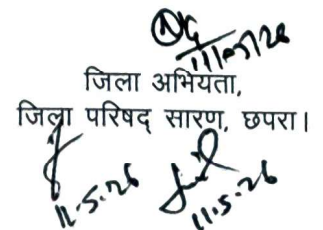 11.05.26
जिला अभियता,
जिला परिषद् सारण, छपरा।
11.5.26
11.5.26